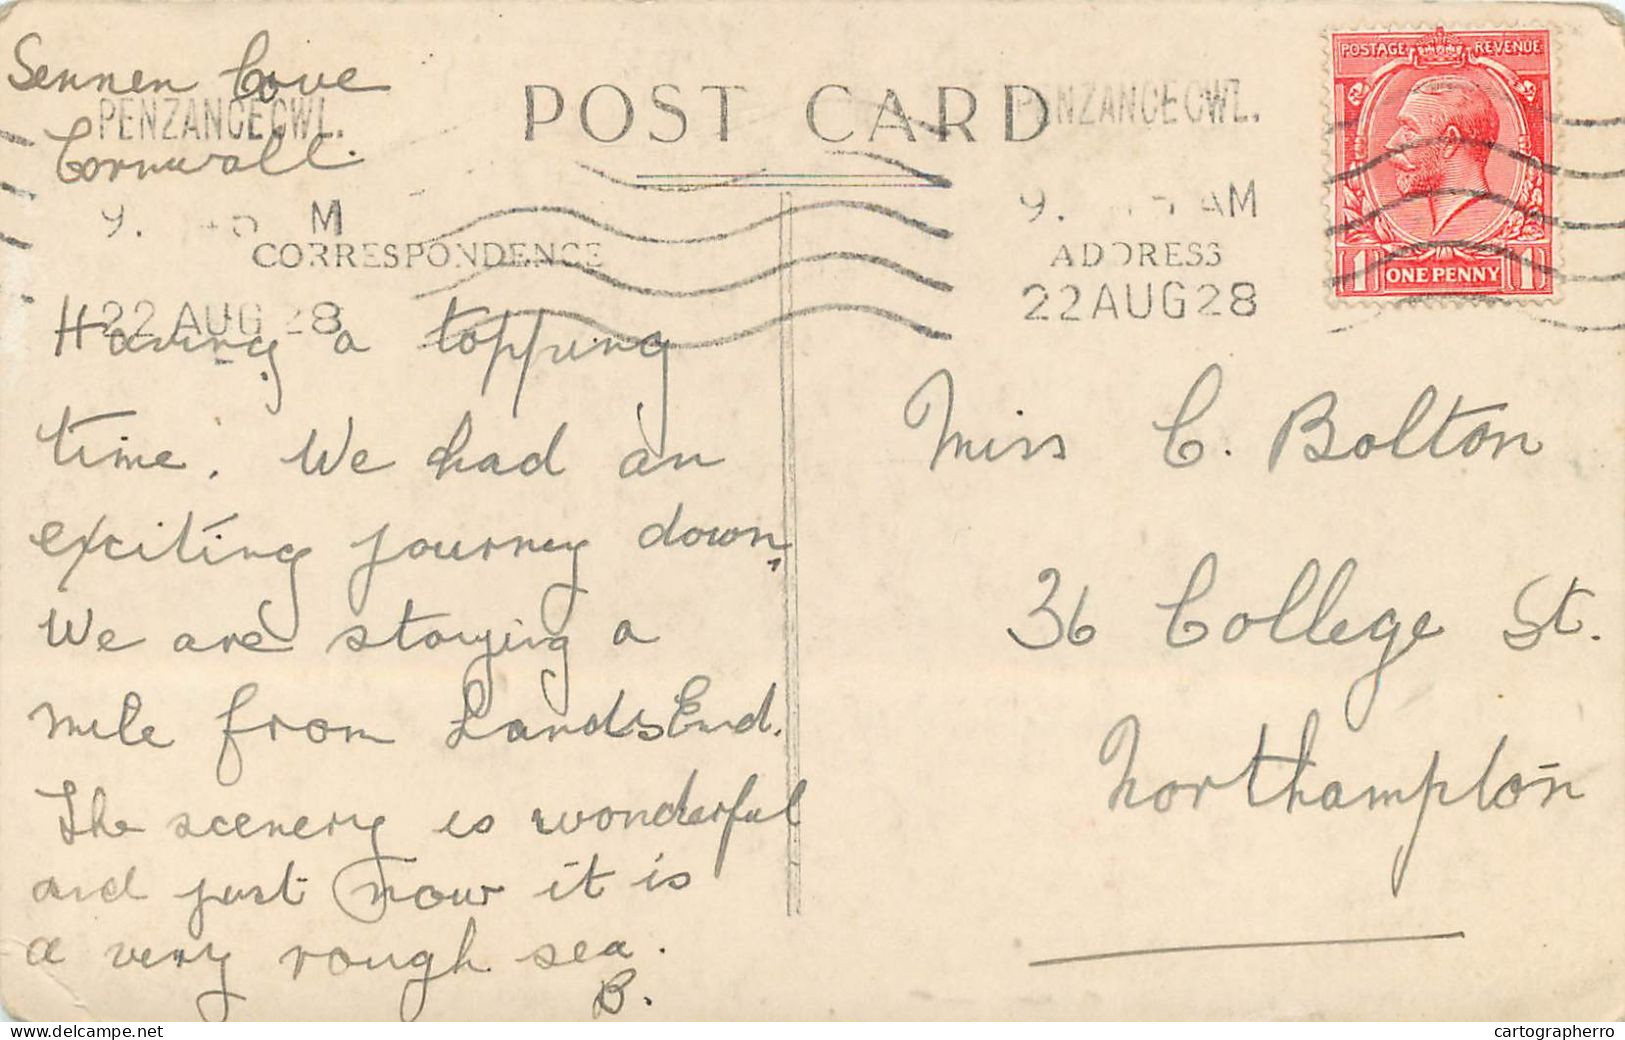 Sennen Cove
PENZANCE CWL.
Cornwall.
9. 45 M
POST CARD
PENZANCE CWL.
9. 45 AM
22 AUG 28
POSTAGE REVENUE
1 ONE PENNY 1
CORRESPONDENCE
ADDRESS
22 AUG 28
Having a topping
time. We had an
exciting journey down.
We are staying a
mile from Lands End.
The scenery is wonderful
and just now it is
a very rough sea.
B.
Miss C. Bolton
36 College St.
Northampton
cartographerro